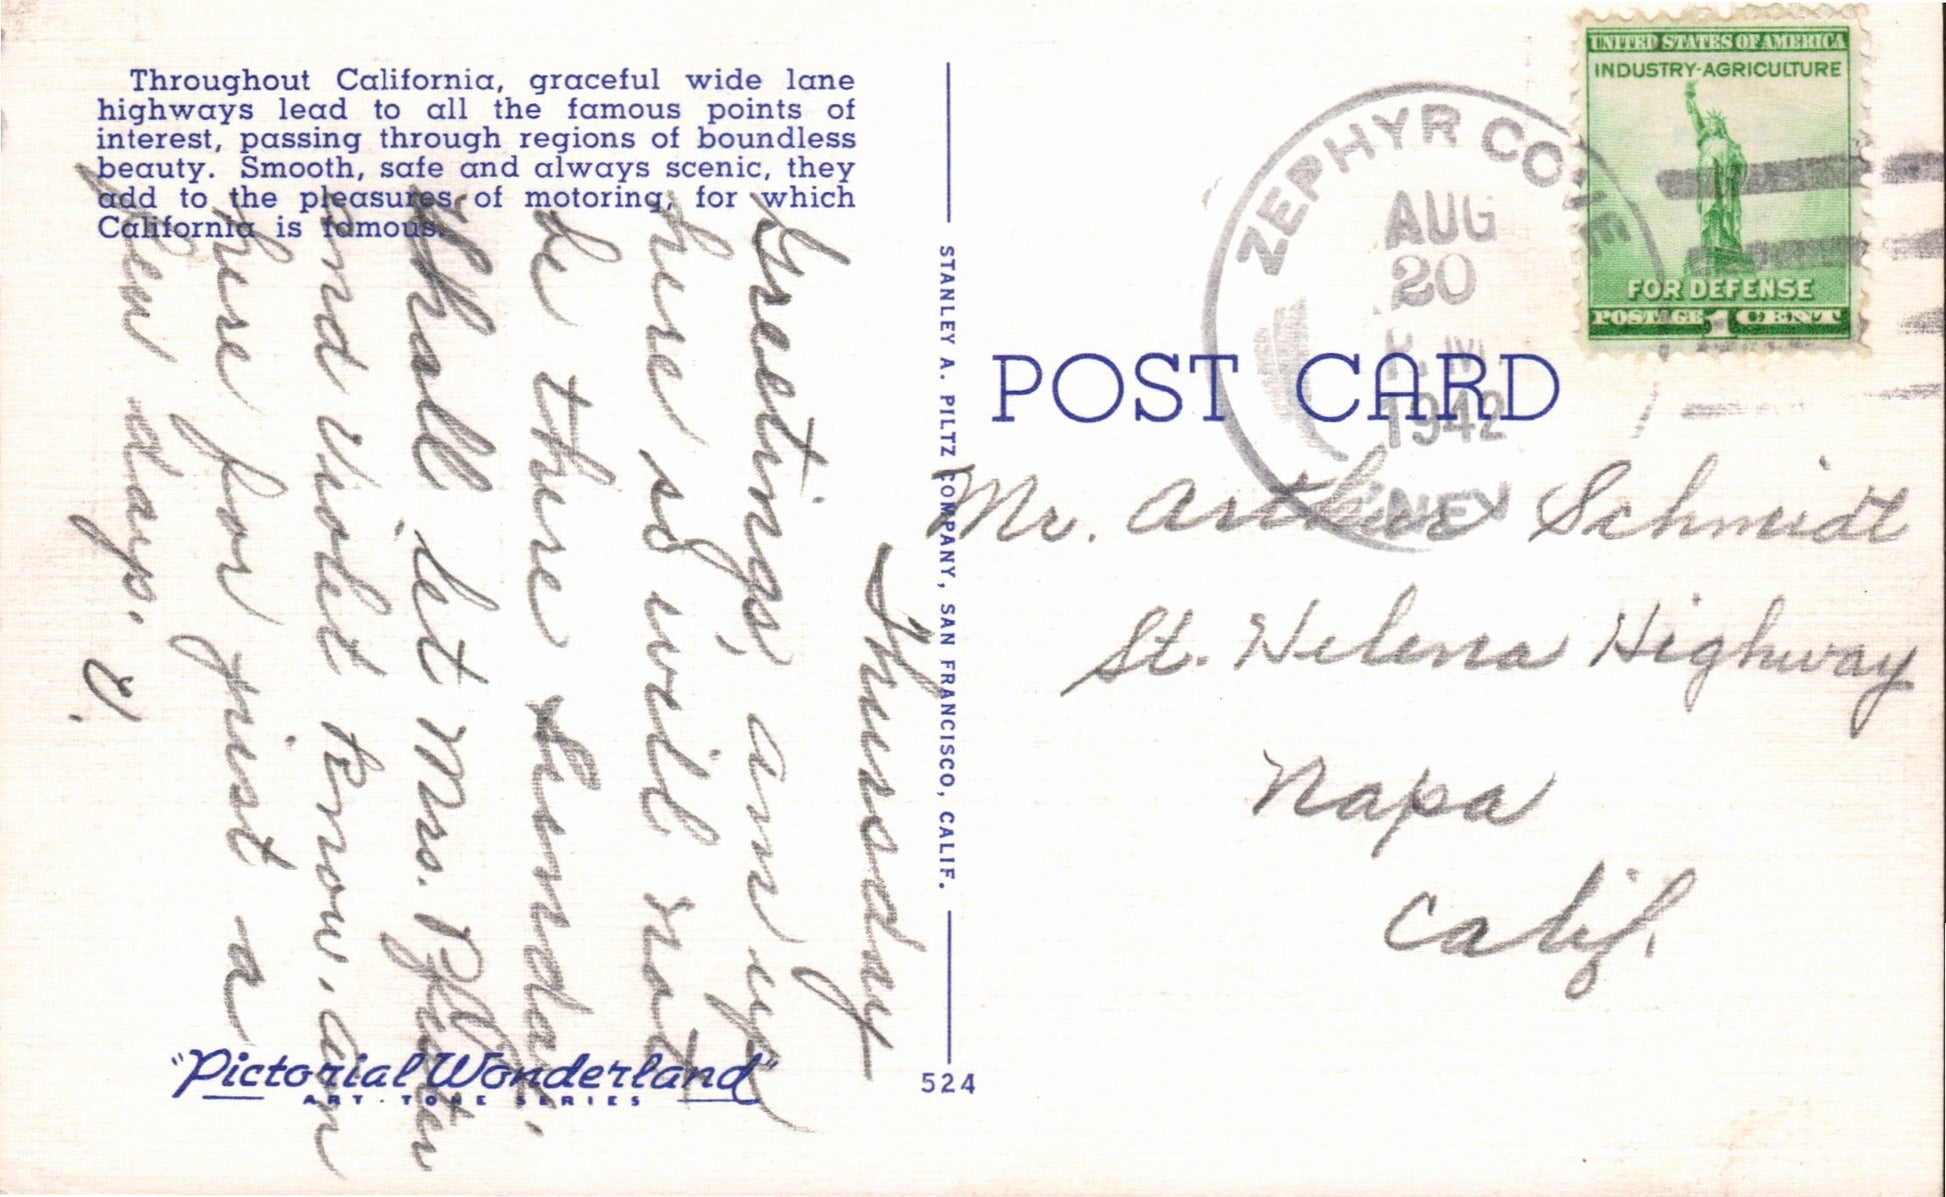 Throughout California, graceful wide lane
highways lead to all the famous points of
interest, passing through regions of boundless
beauty. Smooth, safe and always scenic, they
add to the pleasures of motoring, for which
California is famous.
Thursday
Greetings, am up
here so will not
be there Sunday.
Shall let Mrs.
and Violet know. Am
here for just a
few days. V.
"Pictorial Wonderland"
ART-TONE SERIES
STANLEY A. PILTZ COMPANY, SAN FRANCISCO, CALIF.
524
POST CARD
ZEPHYR COVE
AUG
20
1942
NEV
UNITED STATES OF AMERICA
INDUSTRY-AGRICULTURE
FOR DEFENSE
POSTAGE 1 CENT
Mr. Arthur Schmidt
St. Helena Highway
Napa
Calif.